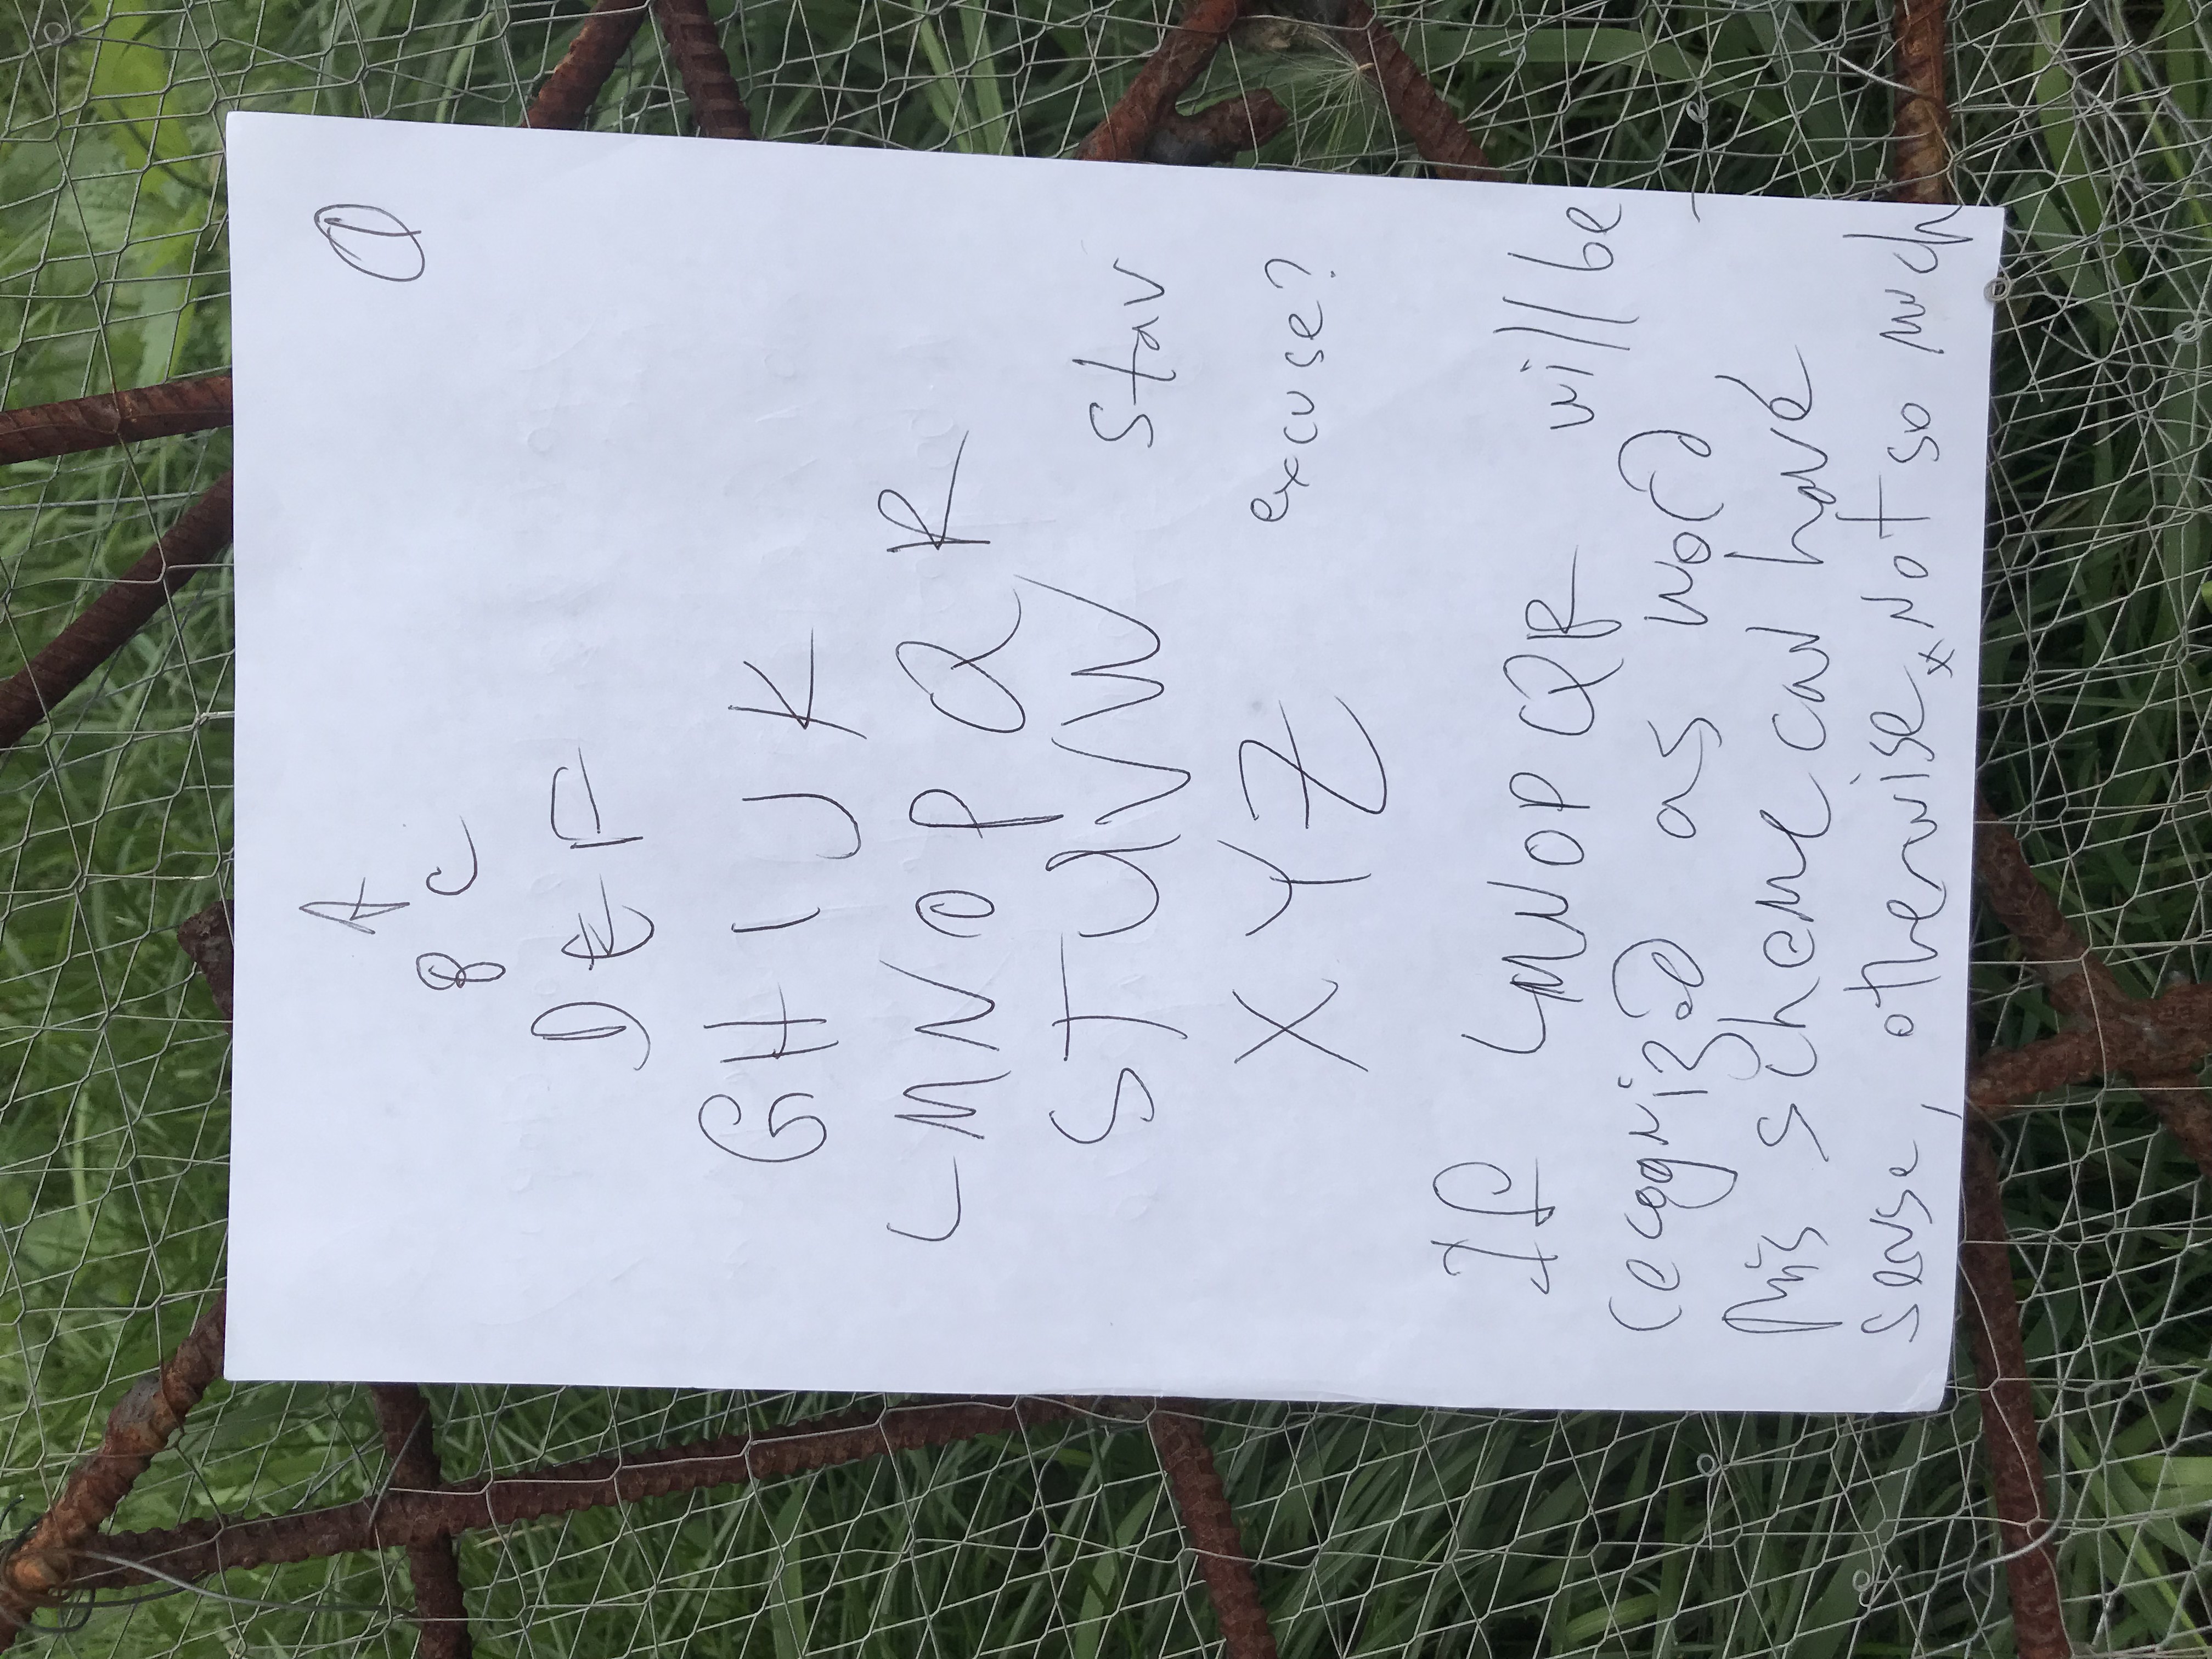 A
①
B C
D E F
G H I J K
L M N O P Q R
S T U V W stav
X Y Z excuse?
If LMNOPQR will be
recognized as word,
this scheme can have
sense, otherwise not so much